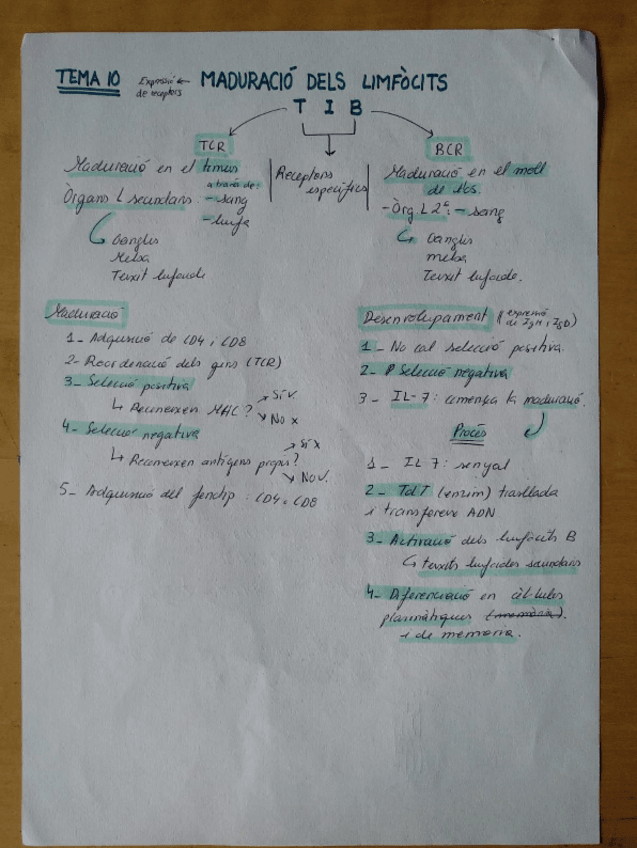 TEMA 10
Expressió
de receptors
MADURACIÓ DELS LIMFÒCITS
T I B
TCR
Maduració en el timus
a través de:
Òrgans L secundaris: - sang
- limfa
Ganglis
Melsa
Teixit limfoide
Receptors
específics
BCR
Maduració en el moll
de l'os.
- Òrg. L 2ⁿ: - sang
Ganglis
melsa
Teixit limfoide.
Maduració
1- Adquisició de CD4 i CD8
2- Reordenació dels gens (TCR)
3- Selecció positiva
↳ Reconeixen MHC?
→ Sí v.
↘ No x
4- Selecció negativa
↳ Reconeixen antígens propis?
→ Sí x
↘ No v.
5- Adquisició del fenotip: CD4 o CD8
Desenvolupament (expressió
de IgM i IgD)
1- No cal selecció positiva.
2- Selecció negativa
3- IL-7: comença la maduració.
Procés
1- IL 7: senyal
2- TdT (enzim) trasllada
i transfereix ADN
3- Activació dels limfòcits B
↳ teixits limfoides secundaris
4- Diferenciació en cèl·lules
plasmàtiques (memòria).
i de memoria.